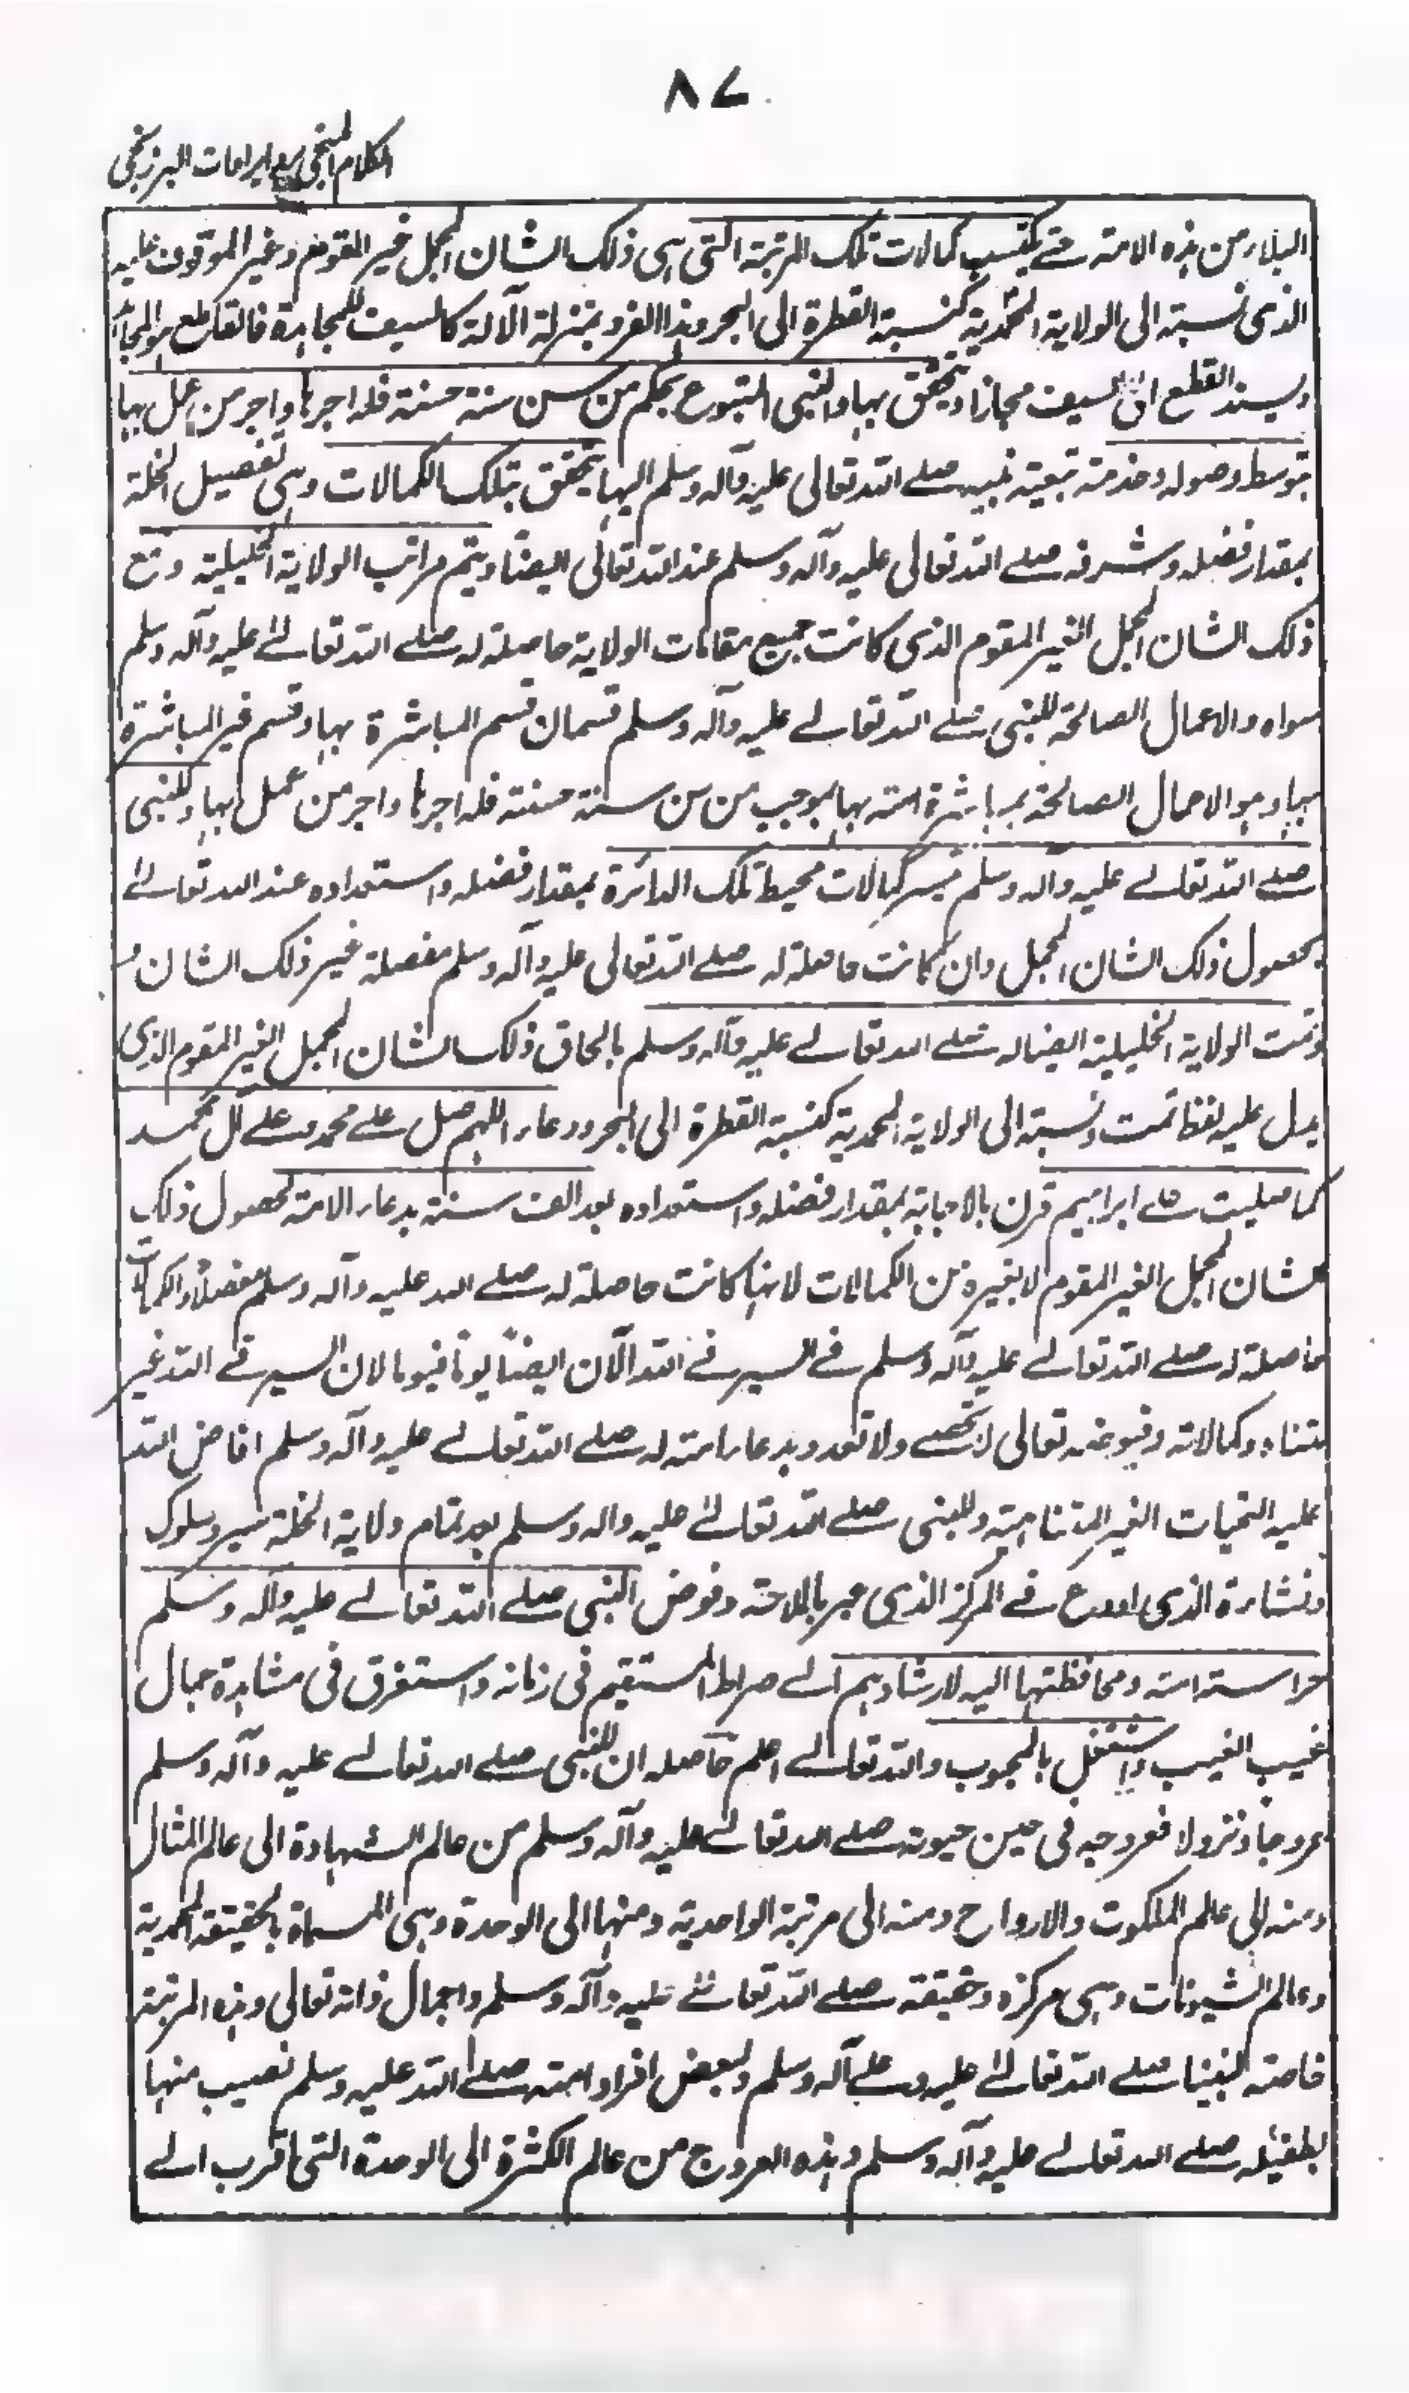 ٨٧
الكلام المنجي برد ايرادات البرزنجي
البلاء من هذه الامة حتى يكتسب كمالات تلك المرتبة التى هى ذلك الشان المجمل غير المقوم وغير الموقوف عليه
الذى نسبته الى الولاية المحمدية كنسبة القطرة الى البحر وهذا الفرد بمنزلة الآلة كالسيف للمجاهد فالقاطع هو المجاهد
ويسند القطع الى السيف مجازا ويتحقق بها والنبى المتبوع بحكم من سن سنة حسنة فله اجرها واجر من عمل بها
بتوسط وصوله وخدمته تبعية نبيه صلى الله تعالى عليه وآله وسلم اليها يتحقق بتلك الكمالات وهى تفصيل الخلة
بمقدار فضله وشرفه صلى الله تعالى عليه وآله وسلم عند الله تعالى ايضا ويتم مراتب الولاية الخليلية ومع
ذلك الشان المجمل الغير المقوم الذى كانت جميع مقامات الولاية حاصلة له صلى الله تعالى عليه وآله وسلم
سواه والاعمال الصالحة للنبى صلى الله تعالى عليه وآله وسلم قسمان قسم المباشرة بها وقسم غير المباشرة
بها وهو الاعمال الصالحة بمباشرة امته بها بموجب من سن سنة حسنة فله اجرها واجر من عمل بها وللنبى
صلى الله تعالى عليه وآله وسلم ميسر كمالات محيط تلك الدائرة بمقدار فضله واستعداده عند الله تعالى
بحصول ذلك الشان المجمل وان كانت حاصلة له صلى الله تعالى عليه وآله وسلم مفصلة غير ذلك الشان
وتمت الولاية الخليلية ايضا له صلى الله تعالى عليه وآله وسلم بالحاق ذلك الشان المجمل الغير المقوم الذى
يدل عليه لفظ تمت ونسبته الى الولاية المحمدية كنسبة القطرة الى البحر ودعاء اللهم صل على محمد وعلى آل محمد
كما صليت على ابراهيم قرن بالاجابة بمقدار فضله واستعداده بعد الف سنة بدعاء الامة لحصول ذلك
الشان المجمل الغير المقوم لا بغيره من الكمالات لانها كانت حاصلة له صلى الله عليه وآله وسلم مفصلا والكمالات
حاصلة له صلى الله تعالى عليه وآله وسلم فى السير فى الله الآن ايضا يوما فيوما لان السير فى الله غير
متناه وكمالاته وفيوضه تعالى لا تحصى ولا تعد وبدعاء امته له صلى الله تعالى عليه وآله وسلم افاض الله
عليه التحيات الغير المتناهية وللنبى صلى الله تعالى عليه وآله وسلم بعد تمام ولاية الخلة سير وسلوك
ونشاءة الذى اودع فى المركز الذى عبر بالملاحة وفوض النبى صلى الله تعالى عليه وآله وسلم
حراسته امته ومحافظتها اليه لارشادهم الى صراط المستقيم فى زمانه واستغرق فى مشاهدة جمال
غيب الغيب واشتغل بالمحبوب والله تعالى اعلم حاصله ان للنبى صلى الله تعالى عليه وآله وسلم
عروجا ونزولا فعروجه فى حين حيوته صلى الله تعالى عليه وآله وسلم من عالم الشهادة الى عالم المثال
ومنه الى عالم الملكوت والارواح ومنه الى مرتبة الواحدية ومنها الى الوحدة وهى المسماة بالحقيقة المحمدية
وعالم الشيونات وهى مركزه وحقيقته صلى الله تعالى عليه وآله وسلم واجمال ذاته تعالى وهذه المرتبة
خاصته لنبينا صلى الله تعالى عليه وعلى آله وسلم ولبعض افراد امته صلى الله عليه وسلم نصيب منها
بطفيله صلى الله تعالى عليه وآله وسلم وهذه العروج من عالم الكثرة الى الوحدة التى اقرب الى